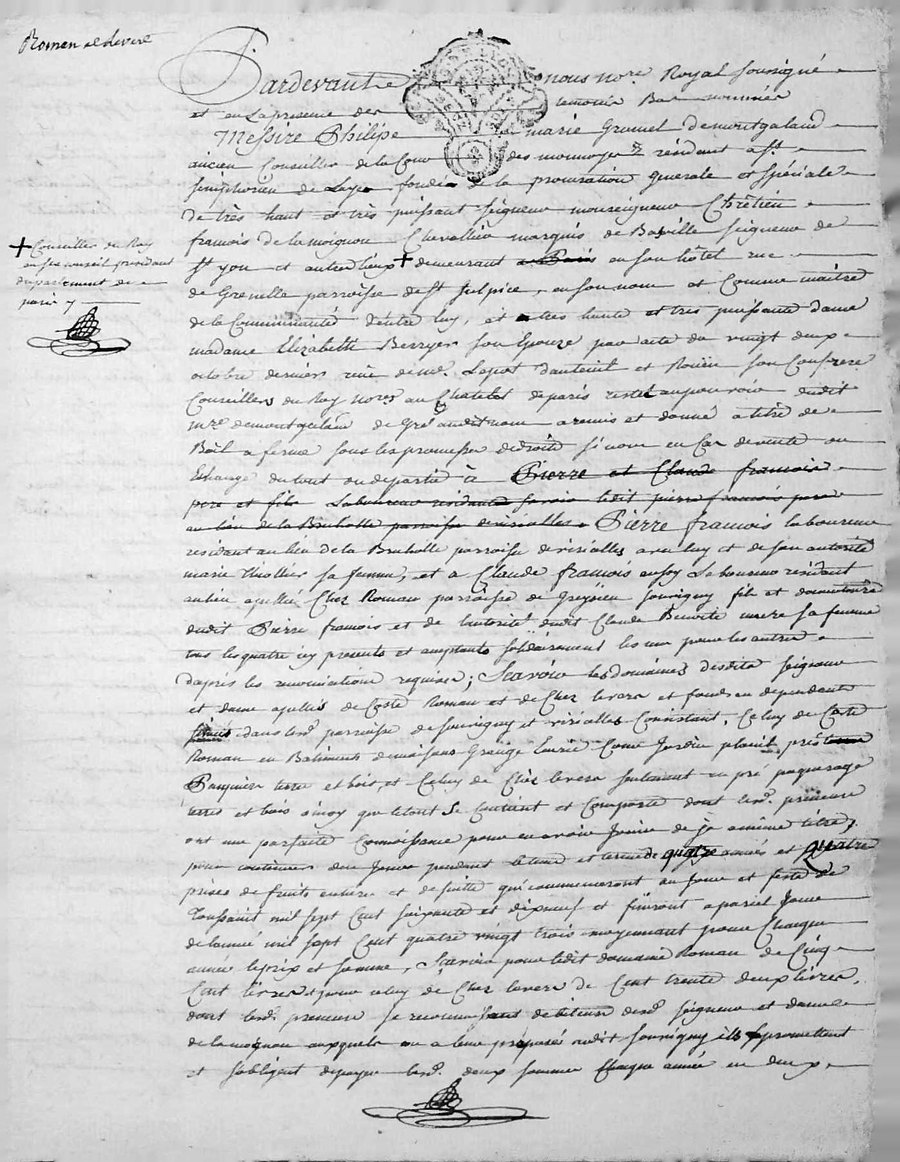 Romen et levere
Pardevant nous nore. Royal soussigné
et en la presence des temoins Bas nommés
Messire Philipe marie Grumel Demontgaland
ancien Conseiller de la Cour des monnoyes résidant a St.
simphorien de Laye fondé de la procuration generale et spéciale
De très haut et très puissant seigneur monseigneur Chrétien
francois de lamoignon Chevallier marquis de Basville seigneur de
St yon et autres lieux + demeurant a Paris en son hôtel rue
de Grenelle parroisse de St Sulpice, en son nom et Comme maitre
de la Communauté d'entre luy, et très haute et très puissante dame
madame Elizabeth Berryer son Epouze par acte du vingt deux
octobre dernier reçu de me. Lepot d'auteuil et son Confrere
Conseillers du Roy nores. au Chatelet de paris resté au pouvoir dudit
mre demontgaland de Gré audit nom a remis et donné a titre de
Bail a ferme sous les promesses de droit si non en Cas de vente ou
Echange du tout ou de partie à Pierre et Claude francois
pere et fils Laboureurs résidants savoir ledit pierre francois pere
au lieu de la Bruholle parroisse de visialles Pierre francois laboureur
résidant au lieu de la Bruholle parroisse de visialles avec luy et de son autorité
marie thollier sa femme, et a Claude francois aussy Laboureur résidant
au lieu apellé Chez Roman parroisse de Souvigny fils et
dudit Pierre francois et de l'autorité dudit Claude Benoite sa femme
tous les quatre icy presents et acceptants solidairement les uns pour les autres
d'après les renonciations requises; Scavoir les domaines desdits seigneur
et dame apellés de Coste Roman et de Chez levere et fonds en dependants
situés dans les parroisses de souvigny et visialles Consistant, Celuy de Coste
Roman en Batiments de maisons Grange Ecurie Cour Jardin prés
Pasquiers terre et bois, et Celuy de Chez levere seulement en pré paquerage
terres et bois ainsy que le tout se Contient et Comporte dont lesd. preneurs
ont une parfaite Connoissance pour en avoir Jouïs de ja a même titre,
pour continuer d'en Jouir pendant le tems et terme de quatre années et Quatre
prises de fruits entiere et de suitte qui commenceront au Jour et feste de
Toussaint mil sept Cent soixante et dix neuf et finiront a pareil Jour
de l'année mil sept Cent quatre vingt trois moyennant pour Chaque
année le prix et somme, Scavoir pour ledit domaine Roman de Cinq
Cent livres et pour celuy de Chez levere de Cent trente deux livres,
dont lesd. preneurs se reconnoissent débiteurs desd. seigneur et dame
de lamoignon auxquels ou a leur préposé audit souvigny ils promettent
et s'obligent de payer lesd. deux sommes Chaque année en deux
+ Conseiller du Roy
en ses conseil president
département de
paris